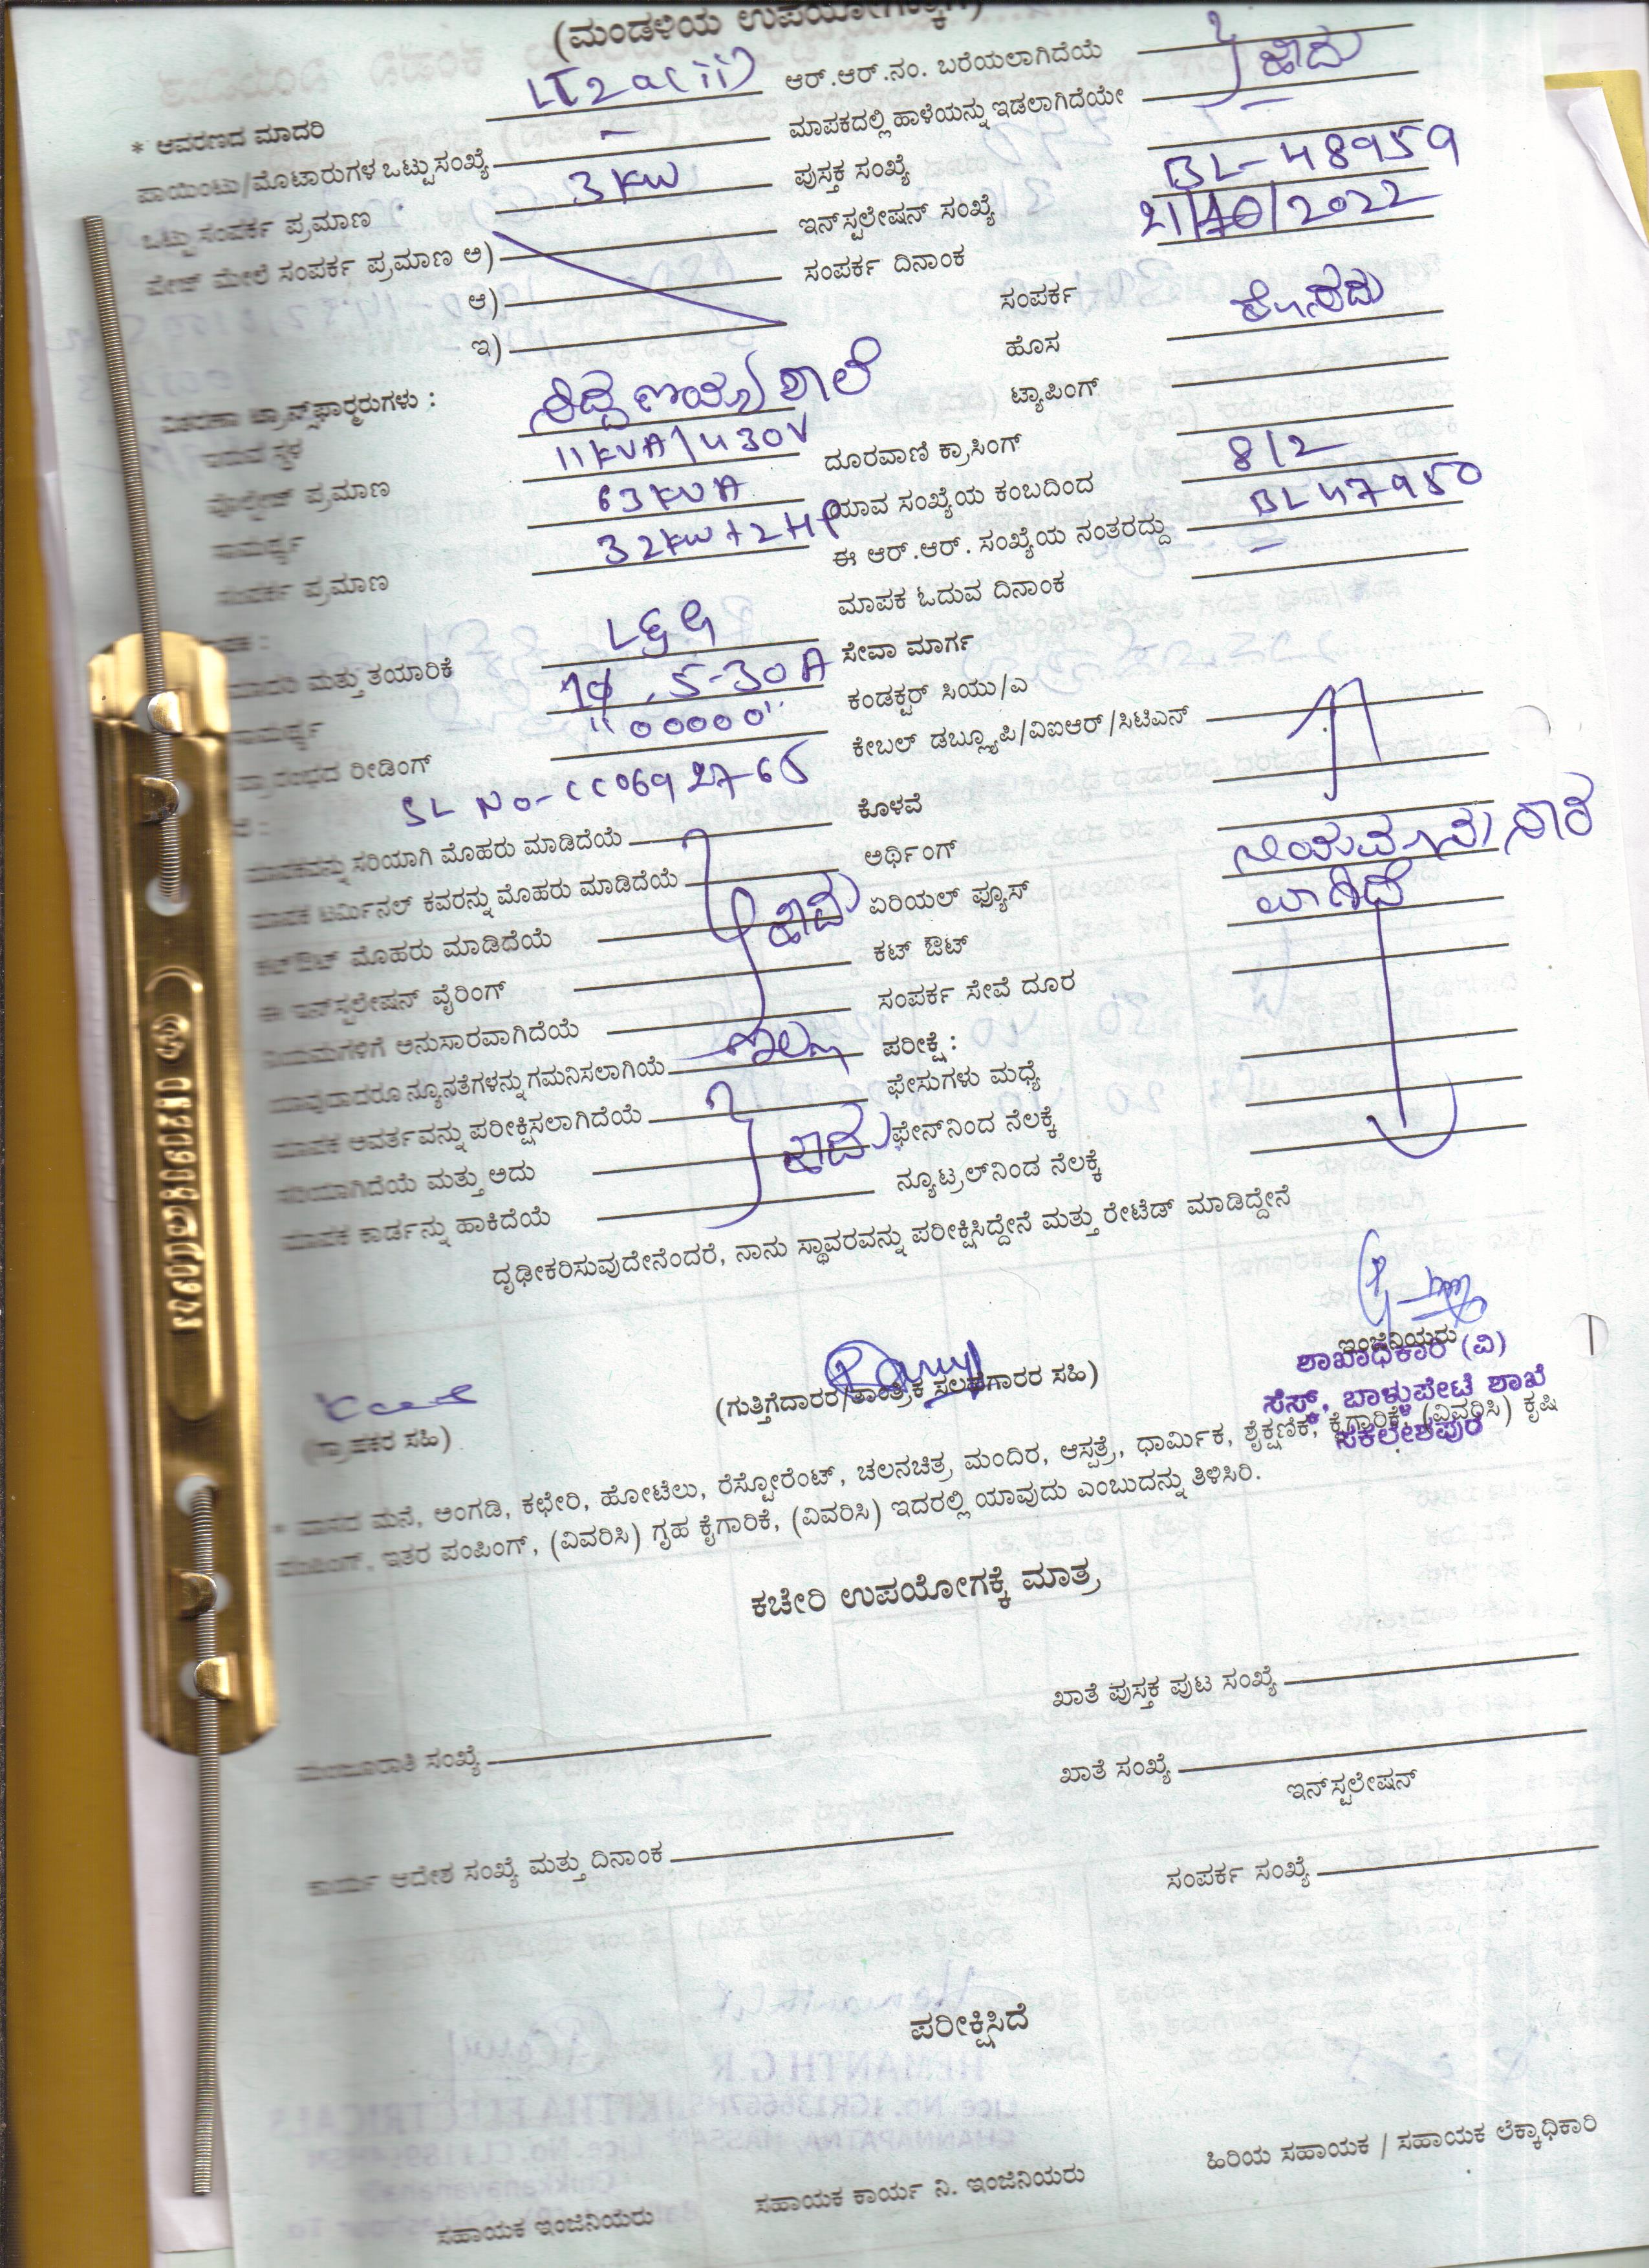 (ಮಂಡಳಿಯ ಉಪಯೋಗಕ್ಕಾಗಿ)
* ಆವರಣದ ಮಾದರಿ LT2a(ii) ಆರ್.ಆರ್.ನಂ. ಬರೆಯಲಾಗಿದೆಯೆ ಹೌದು
ಪಾಯಿಂಟು/ಮೊಟಾರುಗಳ ಒಟ್ಟು ಸಂಖ್ಯೆ - ಮಾಪಕದಲ್ಲಿ ಹಾಳೆಯನ್ನು ಇಡಲಾಗಿದೆಯೇ
ಒಟ್ಟು ಸಂಪರ್ಕ ಪ್ರಮಾಣ 3 KW ಪುಸ್ತಕ ಸಂಖ್ಯೆ -
ಪೇಜ್ ಮೇಲೆ ಸಂಪರ್ಕ ಪ್ರಮಾಣ ಅ) ಇನ್‌ಸ್ಟಲೇಷನ್ ಸಂಖ್ಯೆ BL-48959
ಆ) ಸಂಪರ್ಕ ದಿನಾಂಕ 21/10/2022
ಇ) ಸಂಪರ್ಕ
ಹೊಸ ಹೊಸದು
ವಿತರಣಾ ಟ್ರಾನ್ಸ್‌ಫಾರ್ಮರುಗಳು : ಟ್ಯಾಪಿಂಗ್
ಇರುವ ಸ್ಥಳ ಶಾಲೆ ದೂರವಾಣಿ ಕ್ರಾಸಿಂಗ್
ವೋಲ್ಟೇಜ್ ಪ್ರಮಾಣ 11KVA/430V ಯಾವ ಸಂಖ್ಯೆಯ ಕಂಬದಿಂದ 8/2
ಸಾಮರ್ಥ್ಯ 63KVA ಈ ಆರ್.ಆರ್. ಸಂಖ್ಯೆಯ ನಂತರದ್ದು BL47950
ಸಂಪರ್ಕ ಪ್ರಮಾಣ 32KW+2HP ಮಾಪಕ ಓದುವ ದಿನಾಂಕ -
ಸೇವಾ ಮಾರ್ಗ
ಮಾದರಿ ಮತ್ತು ತಯಾರಿಕೆ L&G ಕಂಡಕ್ಟರ್ ಸಿಯು/ಎ
ಸಾಮರ್ಥ್ಯ 1ϕ, 5-30A ಕೇಬಲ್ ಡಬ್ಲ್ಯೂಪಿ/ವಿಐಆರ್/ಸಿಟಿಎನ್
ಪ್ರಾರಂಭದ ರೀಡಿಂಗ್ "00000"
SL No- ಕೊಳವೆ
ಮಾಪಕವನ್ನು ಸರಿಯಾಗಿ ಮೊಹರು ಮಾಡಿದೆಯೆ ಅರ್ಥಿಂಗ್ ನಿಯಮಾನುಸಾರ
ಮಾಪಕ ಟರ್ಮಿನಲ್ ಕವರನ್ನು ಮೊಹರು ಮಾಡಿದೆಯೆ ಹೌದು ಏರಿಯಲ್ ಫ್ಯೂಸ್ ವಾಗಿದೆ
ಕಟ್‌ಔಟ್ ಮೊಹರು ಮಾಡಿದೆಯೆ ಕಟ್ ಔಟ್
ಈ ಇನ್‌ಸ್ಟಲೇಷನ್ ವೈರಿಂಗ್ ಸಂಪರ್ಕ ಸೇವೆ ದೂರ
ನಿಯಮಗಳಿಗೆ ಅನುಸಾರವಾಗಿದೆಯೆ ಪರೀಕ್ಷೆ :
ಯಾವುದಾದರೂ ನ್ಯೂನತೆಗಳನ್ನು ಗಮನಿಸಲಾಗಿಯೆ ಇಲ್ಲ ಫೇಸುಗಳು ಮಧ್ಯೆ
ಮಾಪಕ ಆವರ್ತವನ್ನು ಪರೀಕ್ಷಿಸಲಾಗಿದೆಯೆ ಫೇನ್‌ನಿಂದ ನೆಲಕ್ಕೆ
ಸರಿಯಾಗಿದೆಯೆ ಮತ್ತು ಅದು ಹೌದು ನ್ಯೂಟ್ರಲ್‌ನಿಂಡ ನೆಲಕ್ಕೆ
ಮಾಪಕ ಕಾರ್ಡನ್ನು ಹಾಕಿದೆಯೆ
ದೃಢೀಕರಿಸುವುದೇನೆಂದರೆ, ನಾನು ಸ್ಥಾವರವನ್ನು ಪರೀಕ್ಷಿಸಿದ್ದೇನೆ ಮತ್ತು ರೇಟೆಡ್ ಮಾಡಿದ್ದೇನೆ
ಇಂಜಿನಿಯರು
ಶಾಖಾಧಿಕಾರಿ (ವಿ)
ಸೆಸ್ಕ್, ಬಾಳ್ಳುಪೇಟೆ ಶಾಖೆ
ಸಕಲೇಶಪುರ
(ಗ್ರಾಹಕರ ಸಹಿ) (ಗುತ್ತಿಗೆದಾರರ/ತಾಂತ್ರಿಕ ಸಲಹಾಗಾರರ ಸಹಿ)
* ವಾಸದ ಮನೆ, ಅಂಗಡಿ, ಕಛೇರಿ, ಹೋಟೆಲು, ರೆಸ್ಟೋರೆಂಟ್, ಚಲನಚಿತ್ರ ಮಂದಿರ, ಆಸ್ಪತ್ರೆ, ಧಾರ್ಮಿಕ, ಶೈಕ್ಷಣಿಕ, ಕೈಗಾರಿಕೆ, (ವಿವರಿಸಿ) ಕೃಷಿ
ಪಂಪಿಂಗ್, ಇತರ ಪಂಪಿಂಗ್, (ವಿವರಿಸಿ) ಗೃಹ ಕೈಗಾರಿಕೆ, (ವಿವರಿಸಿ) ಇದರಲ್ಲಿ ಯಾವುದು ಎಂಬುದನ್ನು ತಿಳಿಸಿರಿ.
ಕಚೇರಿ ಉಪಯೋಗಕ್ಕೆ ಮಾತ್ರ
ಮಂಜೂರಾತಿ ಸಂಖ್ಯೆ ಖಾತೆ ಪುಸ್ತಕ ಪುಟ ಸಂಖ್ಯೆ
ಖಾತೆ ಸಂಖ್ಯೆ
ಇನ್‌ಸ್ಟಲೇಷನ್
ಕಾರ್ಯ ಆದೇಶ ಸಂಖ್ಯೆ ಮತ್ತು ದಿನಾಂಕ ಸಂಪರ್ಕ ಸಂಖ್ಯೆ
ಪರೀಕ್ಷಿಸಿದೆ
ಸಹಾಯಕ ಇಂಜಿನಿಯರು ಸಹಾಯಕ ಕಾರ್ಯ ನಿ. ಇಂಜಿನಿಯರು ಹಿರಿಯ ಸಹಾಯಕ / ಸಹಾಯಕ ಲೆಕ್ಕಾಧಿಕಾರಿ